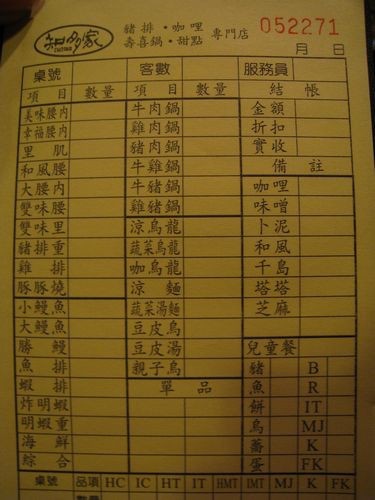 知多家
豬排・咖哩 專門店 052271
壽喜鍋・甜點
月 日
桌號 客數 服務員
項目 數量 項目 數量 結帳
美味腰內 牛肉鍋 金額
幸福腰內 雞肉鍋 折扣
里肌 豬肉鍋 實收
和風腰 牛雞鍋 備註
大腰內 牛豬鍋 咖哩
雙味腰 雞豬鍋 味噌
雙味里 涼烏龍 卜泥
豬排重 蔬菜烏龍 和風
雞排 咖烏龍 千島
豚豚燒 涼麵 塔塔
小鰻魚 蔬菜湯麵 芝麻
大鰻魚 豆皮烏
勝鰻 豆皮湯 兒童餐
魚排 親子烏 豬 B
蝦排 單品 魚 R
炸明蝦 餅 IT
明蝦重 烏 MJ
海鮮 蕃 K
綜合 蛋 FK
桌號 品項 HC IC HT IT HMT IMT MJ K FK
數量